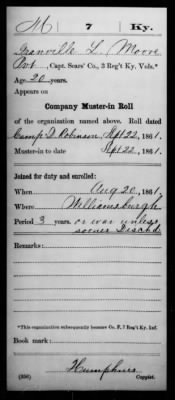 M 7 Ky.
Granville L. Moore
Pvt, Capt. Sears' Co., 3 Reg't Ky. Vols.*
Age 20 years.
Appears on
Company Muster-in Roll
of the organization named above. Roll dated
Camp D Robinson, Sept 22, 1861.
Muster-in to date Sept 22, 1861.
Joined for duty and enrolled:
When Aug 20, 1861.
Where Williamsburgh
Period 3 years. or war unless
sooner Disch'd
Remarks:
*This organization subsequently became Co. F, 7 Reg't Ky. Inf.
Book mark:
Humphries
(356) Copyist.